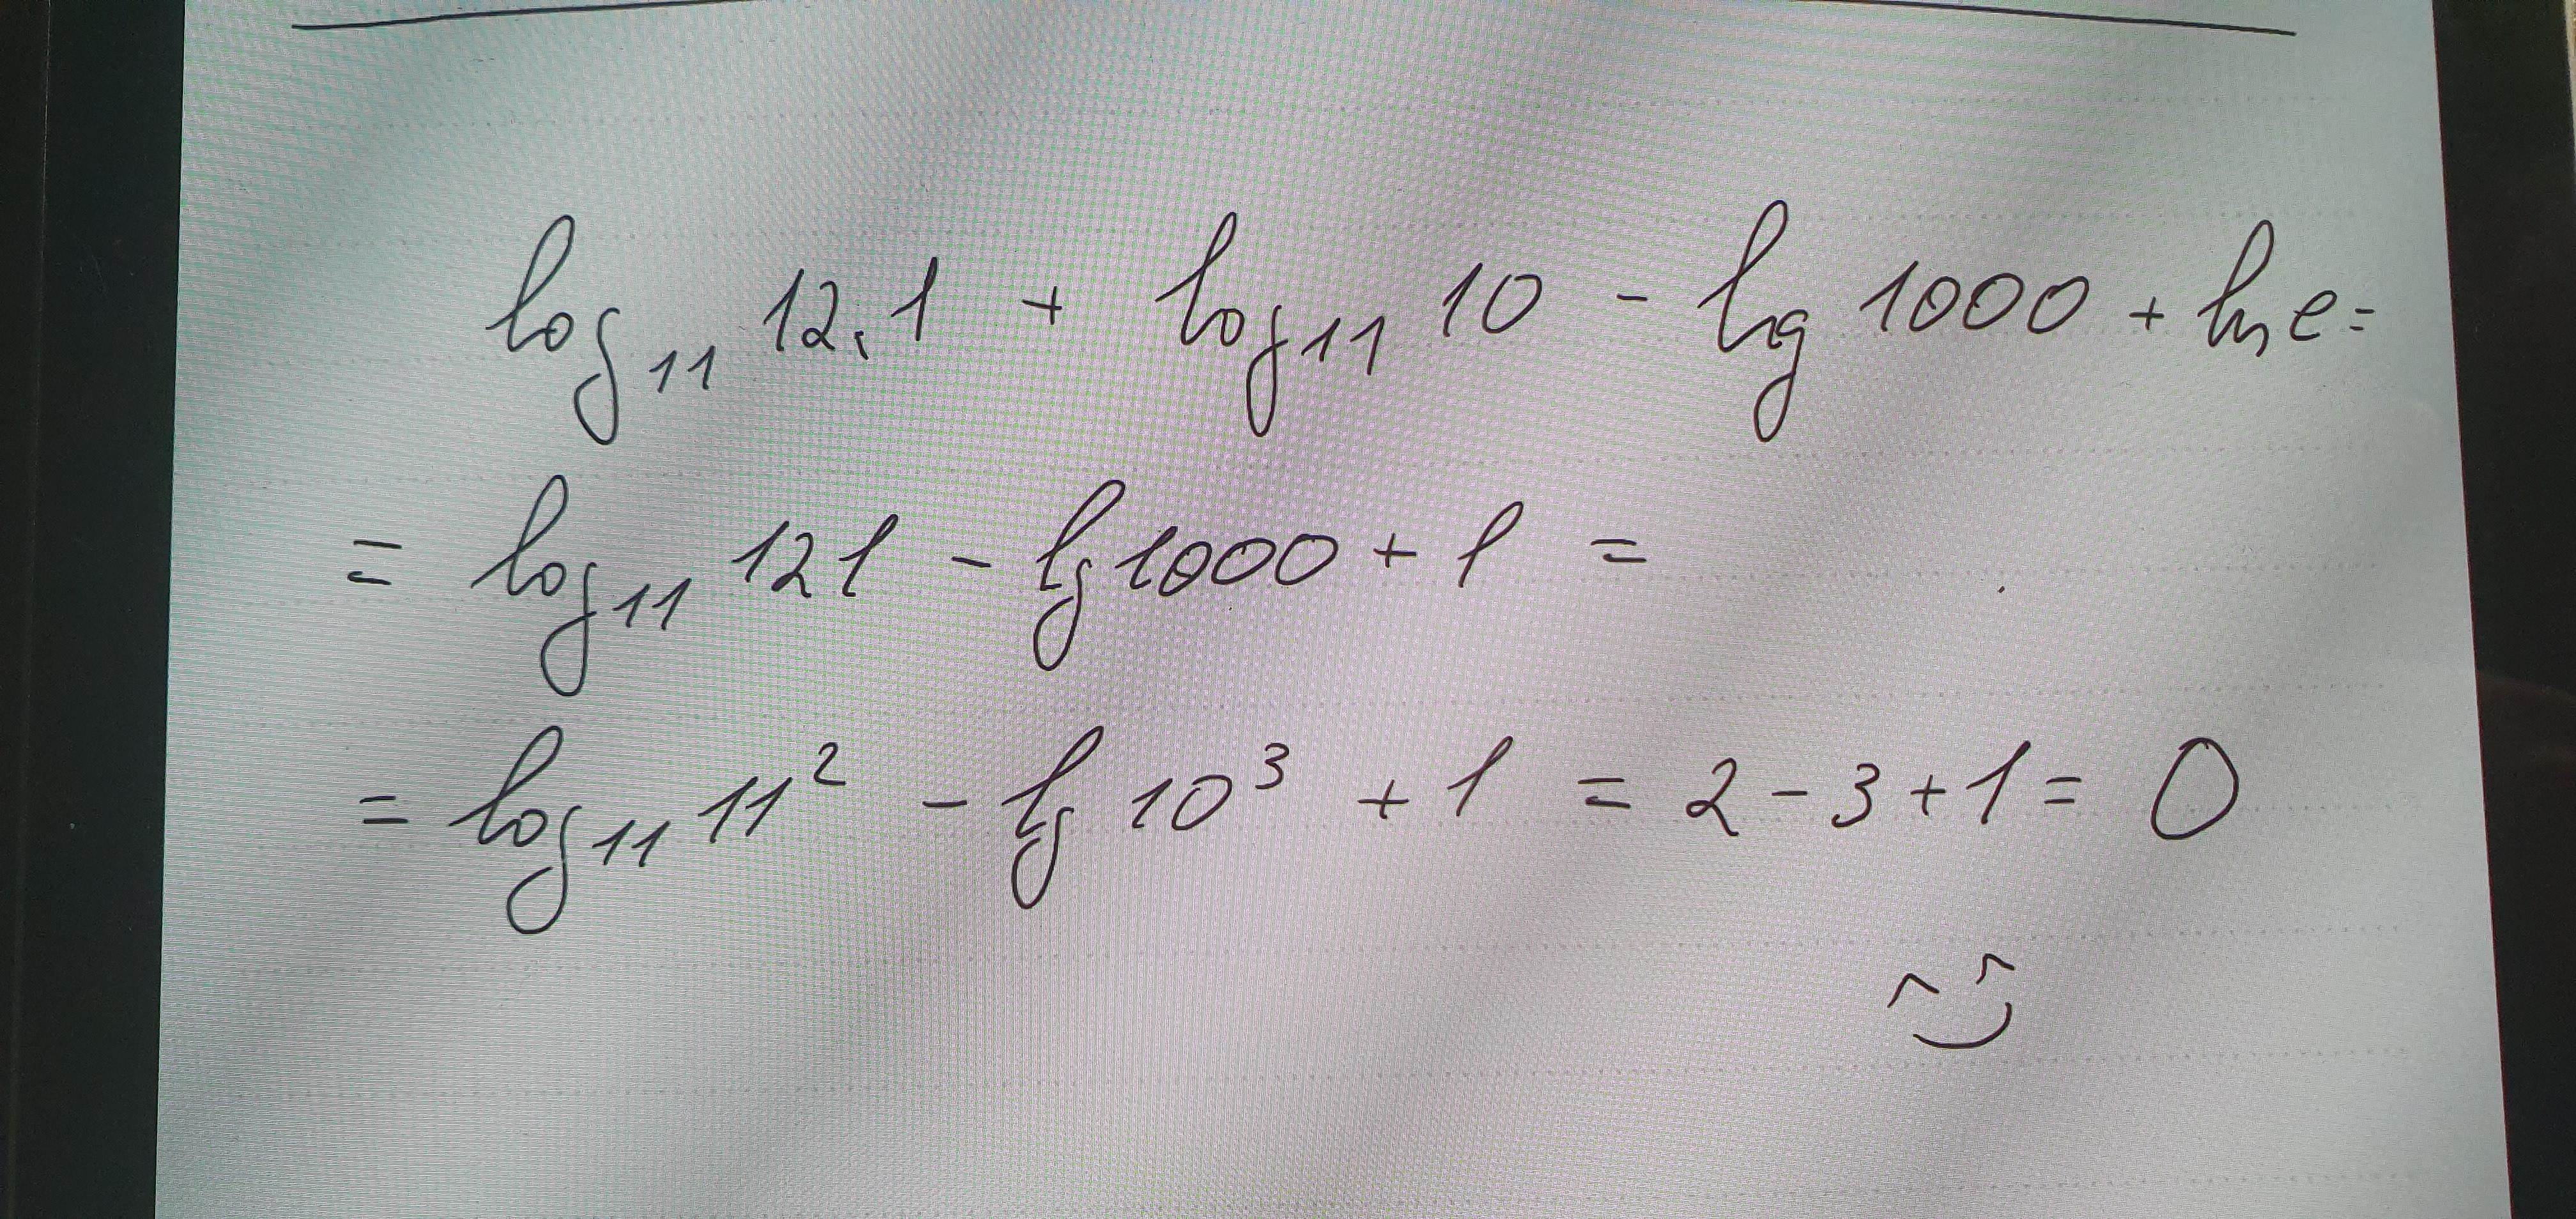 log₁₁ 12,1 + log₁₁ 10 - lg 1000 + ln e =
= log₁₁ 121 - lg 1000 + 1 =
= log₁₁ 11² - lg 10³ + 1 = 2 - 3 + 1 = 0